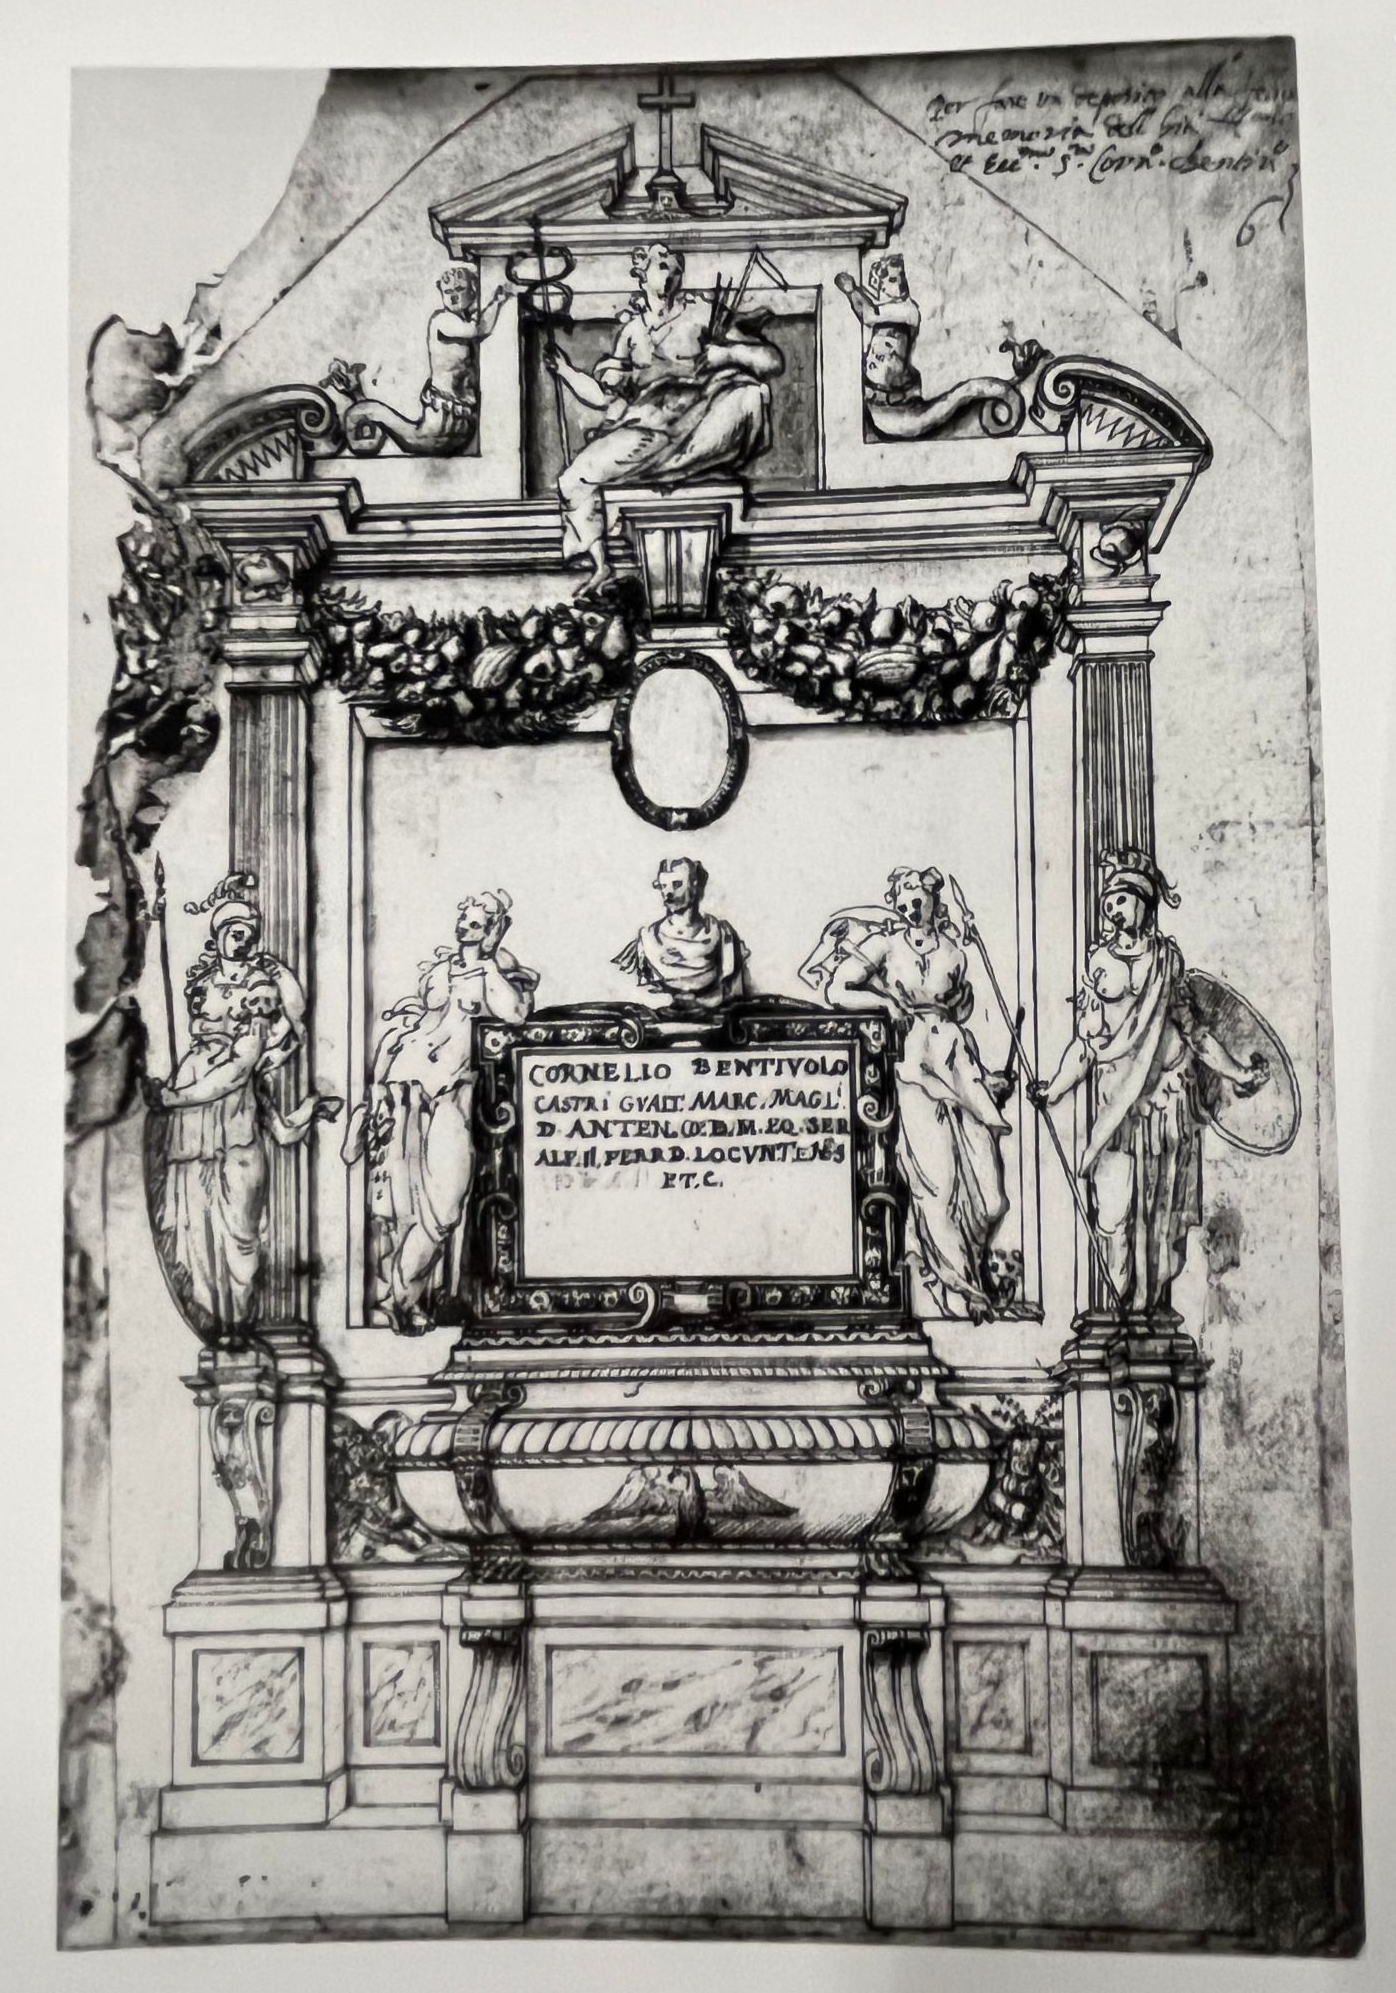 Per fare un deposito alla
memoria dell
et Ecc.mo S.r Corn.o Bentiv.o
6
CORNELIO BENTIVOLO
CASTRI GVALT. MARC. MAGL.
D ANTEN. M. EQ. SER
ALF. II, FERRD. LOCVNTENS
ET. C.